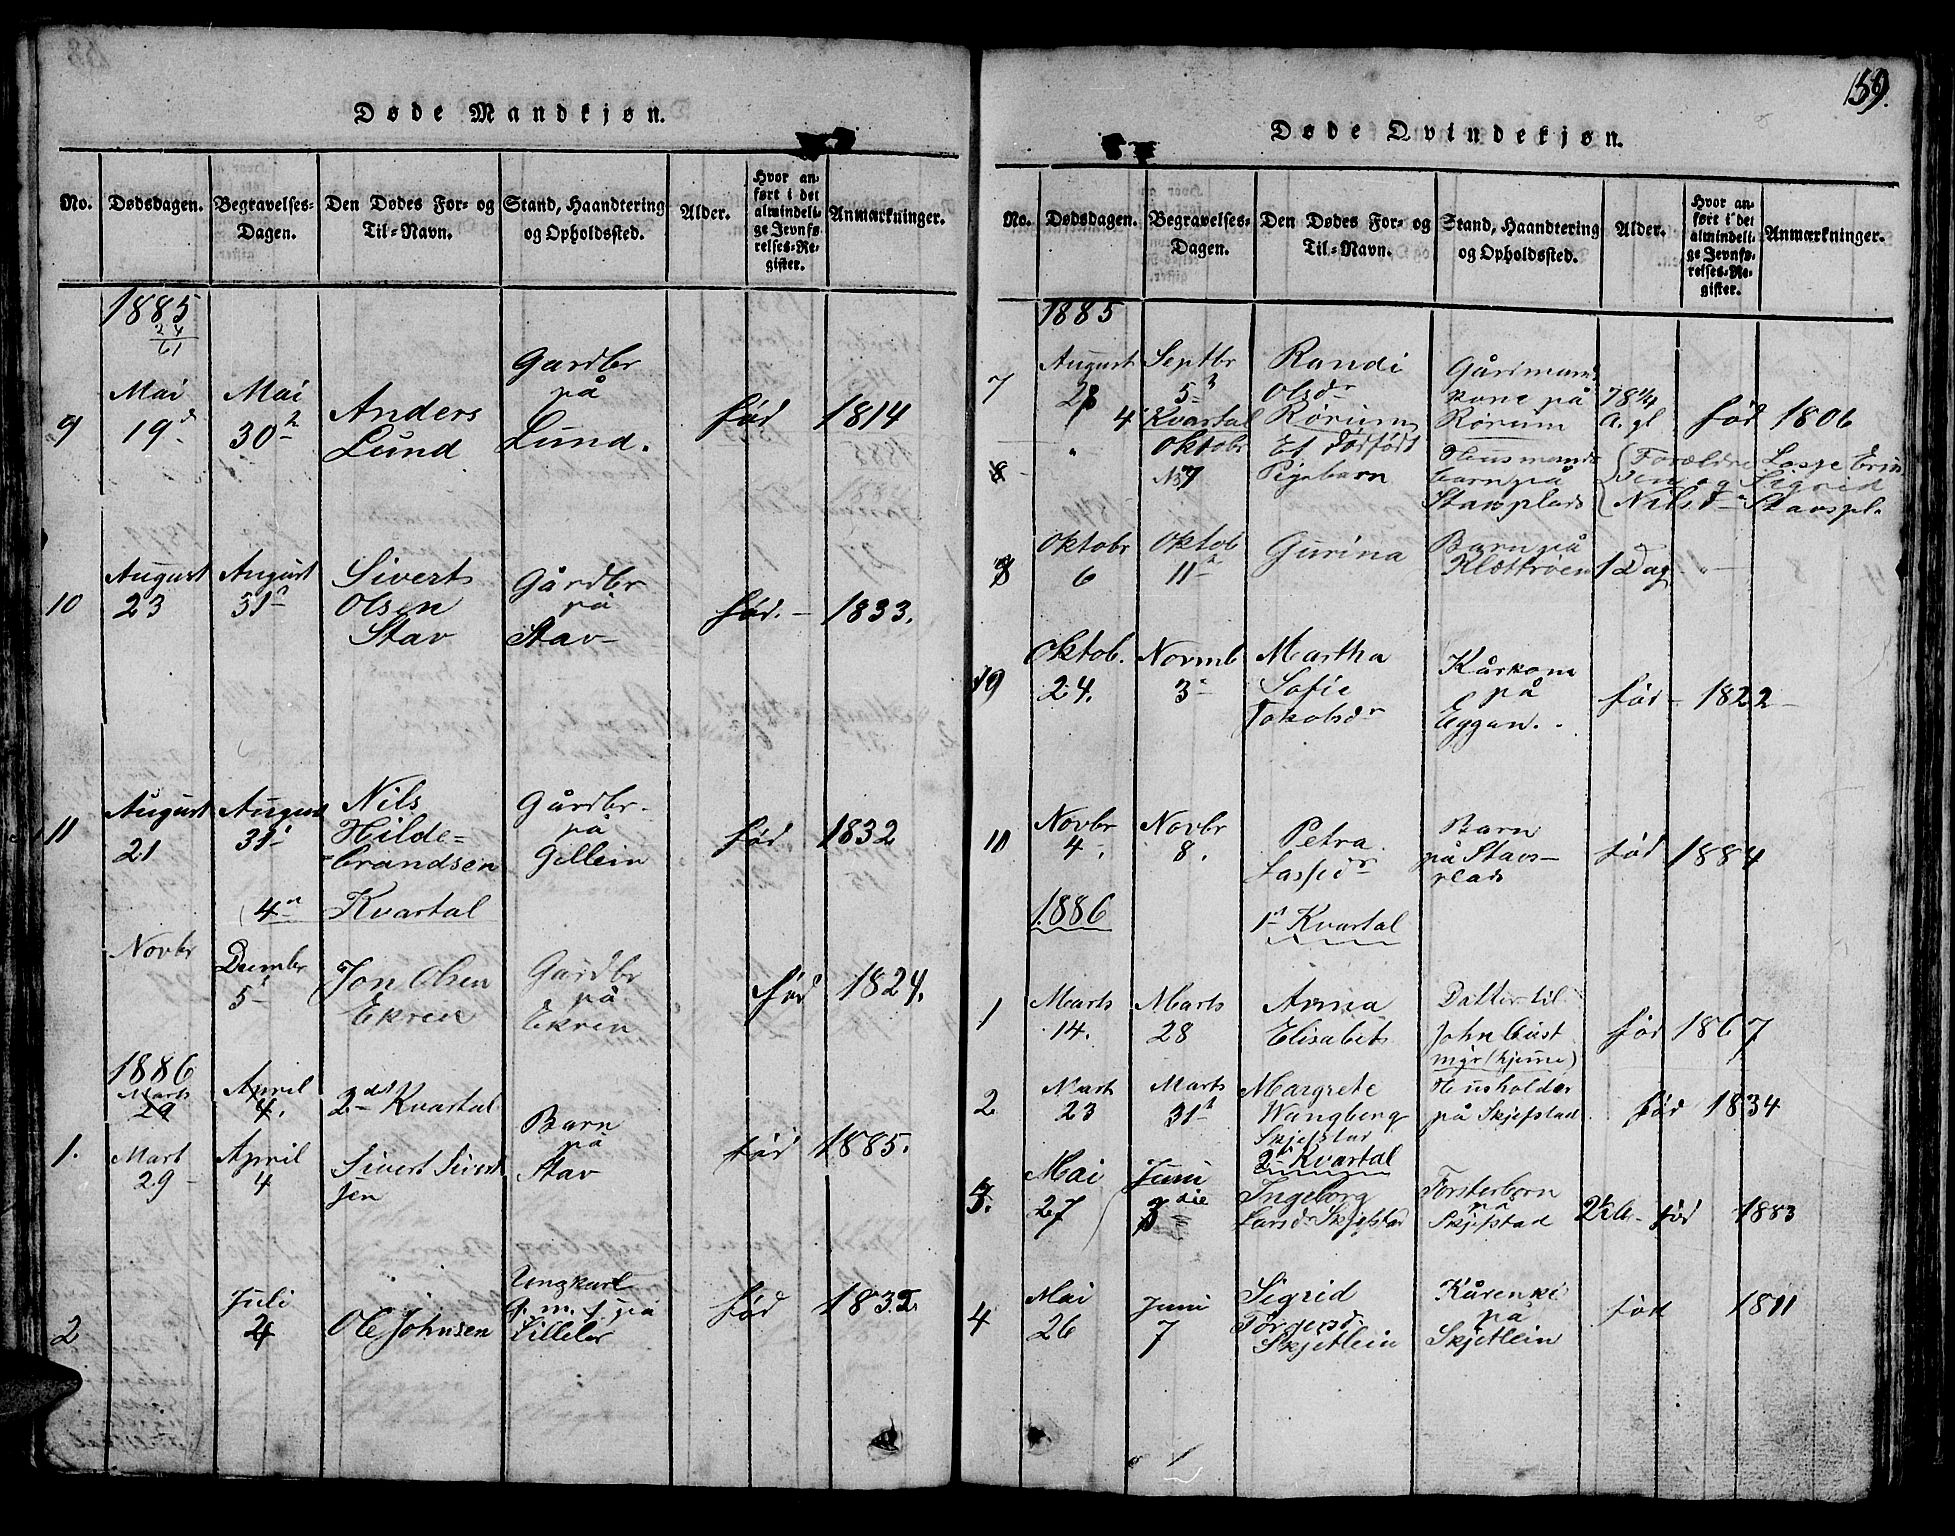 159.
Døde Mandkjøn.
No. Dødsdagen. Begravelses-Dagen. Den Dødes For- og Til-Navn. Stand, Haandtering og Opholdssted. Alder. Hvor anført i det almindelige Jevnførelses-Register. Anmærkninger.
1885
24
61
9 Mai 19d Mai 30 Anders Lund Gardbr på Lund. fød 1814
10 August 23 August 31 Sivert Olsen Stav Gårdbr på Stav fød. - 1833.
11 August 21 August 31 Nils Hilde=brandsen Gårdbr. på Gellein fød 1832
4 Kvartal
Novbr Dcembr 5 Jon Olsen Ekren Gardbr på Ekren fød 1824.
1886
Marts 29 April 4. 2det Kvartal
1. Mart 29 April 4 Sivert Sivertsen Barn på Stav fød 1885.
2 Juli Ole Johnsen Ungkarl på Tiller fød
Døde Qvindekjøn.
No. Dødsdagen. Begravelses-Dagen. Den Dødes For- og Til-Navn. Stand, Haandtering og Opholdssted. Alder. Hvor anført i det almindelige Jevnførelses-Register. Anmærkninger.
1885
7 August Septbr 5 Randi Olsdr Rørum Gårdmands kone på Rørum 78 1/4 A. gl fød 1806
4 Kvartal
8 " Oktobr Et dødfødt Pigebarn Husmands barn på Stavsplads Forældre Lasse Erik sen og Sigrid Nilsdr Stavspl.
Oktobr 6 Oktob 11 Gurina Barn på Klættrøen 1 Dag "
9 Oktob. 24. Novmb 3 Martha Sofie Jakobsdr Kårkone på Eggan. fød - 1822 -
10 Novbr 4. Novbr 8. Petra Lassedr Barn på Stavs-plads fød 1884
1886 1st Kvartal
1 Marts 14. Marts 28 Anna Elisabet Datter til John fød 1867
2 Mart 23 Marts 31 Margrete Wangberg Skjefstad Husholder på Skjefstad fød 1834
2 Kvartal
3. Mai 27 Juni Ingeborg Larsdr Skjefstad Fosterbarn på Skjefstad fød 1883
4 Mai 26 Juni 7 Sigrid Torgersdr Skjetlein Kårenke på Skjetlein fød 1811